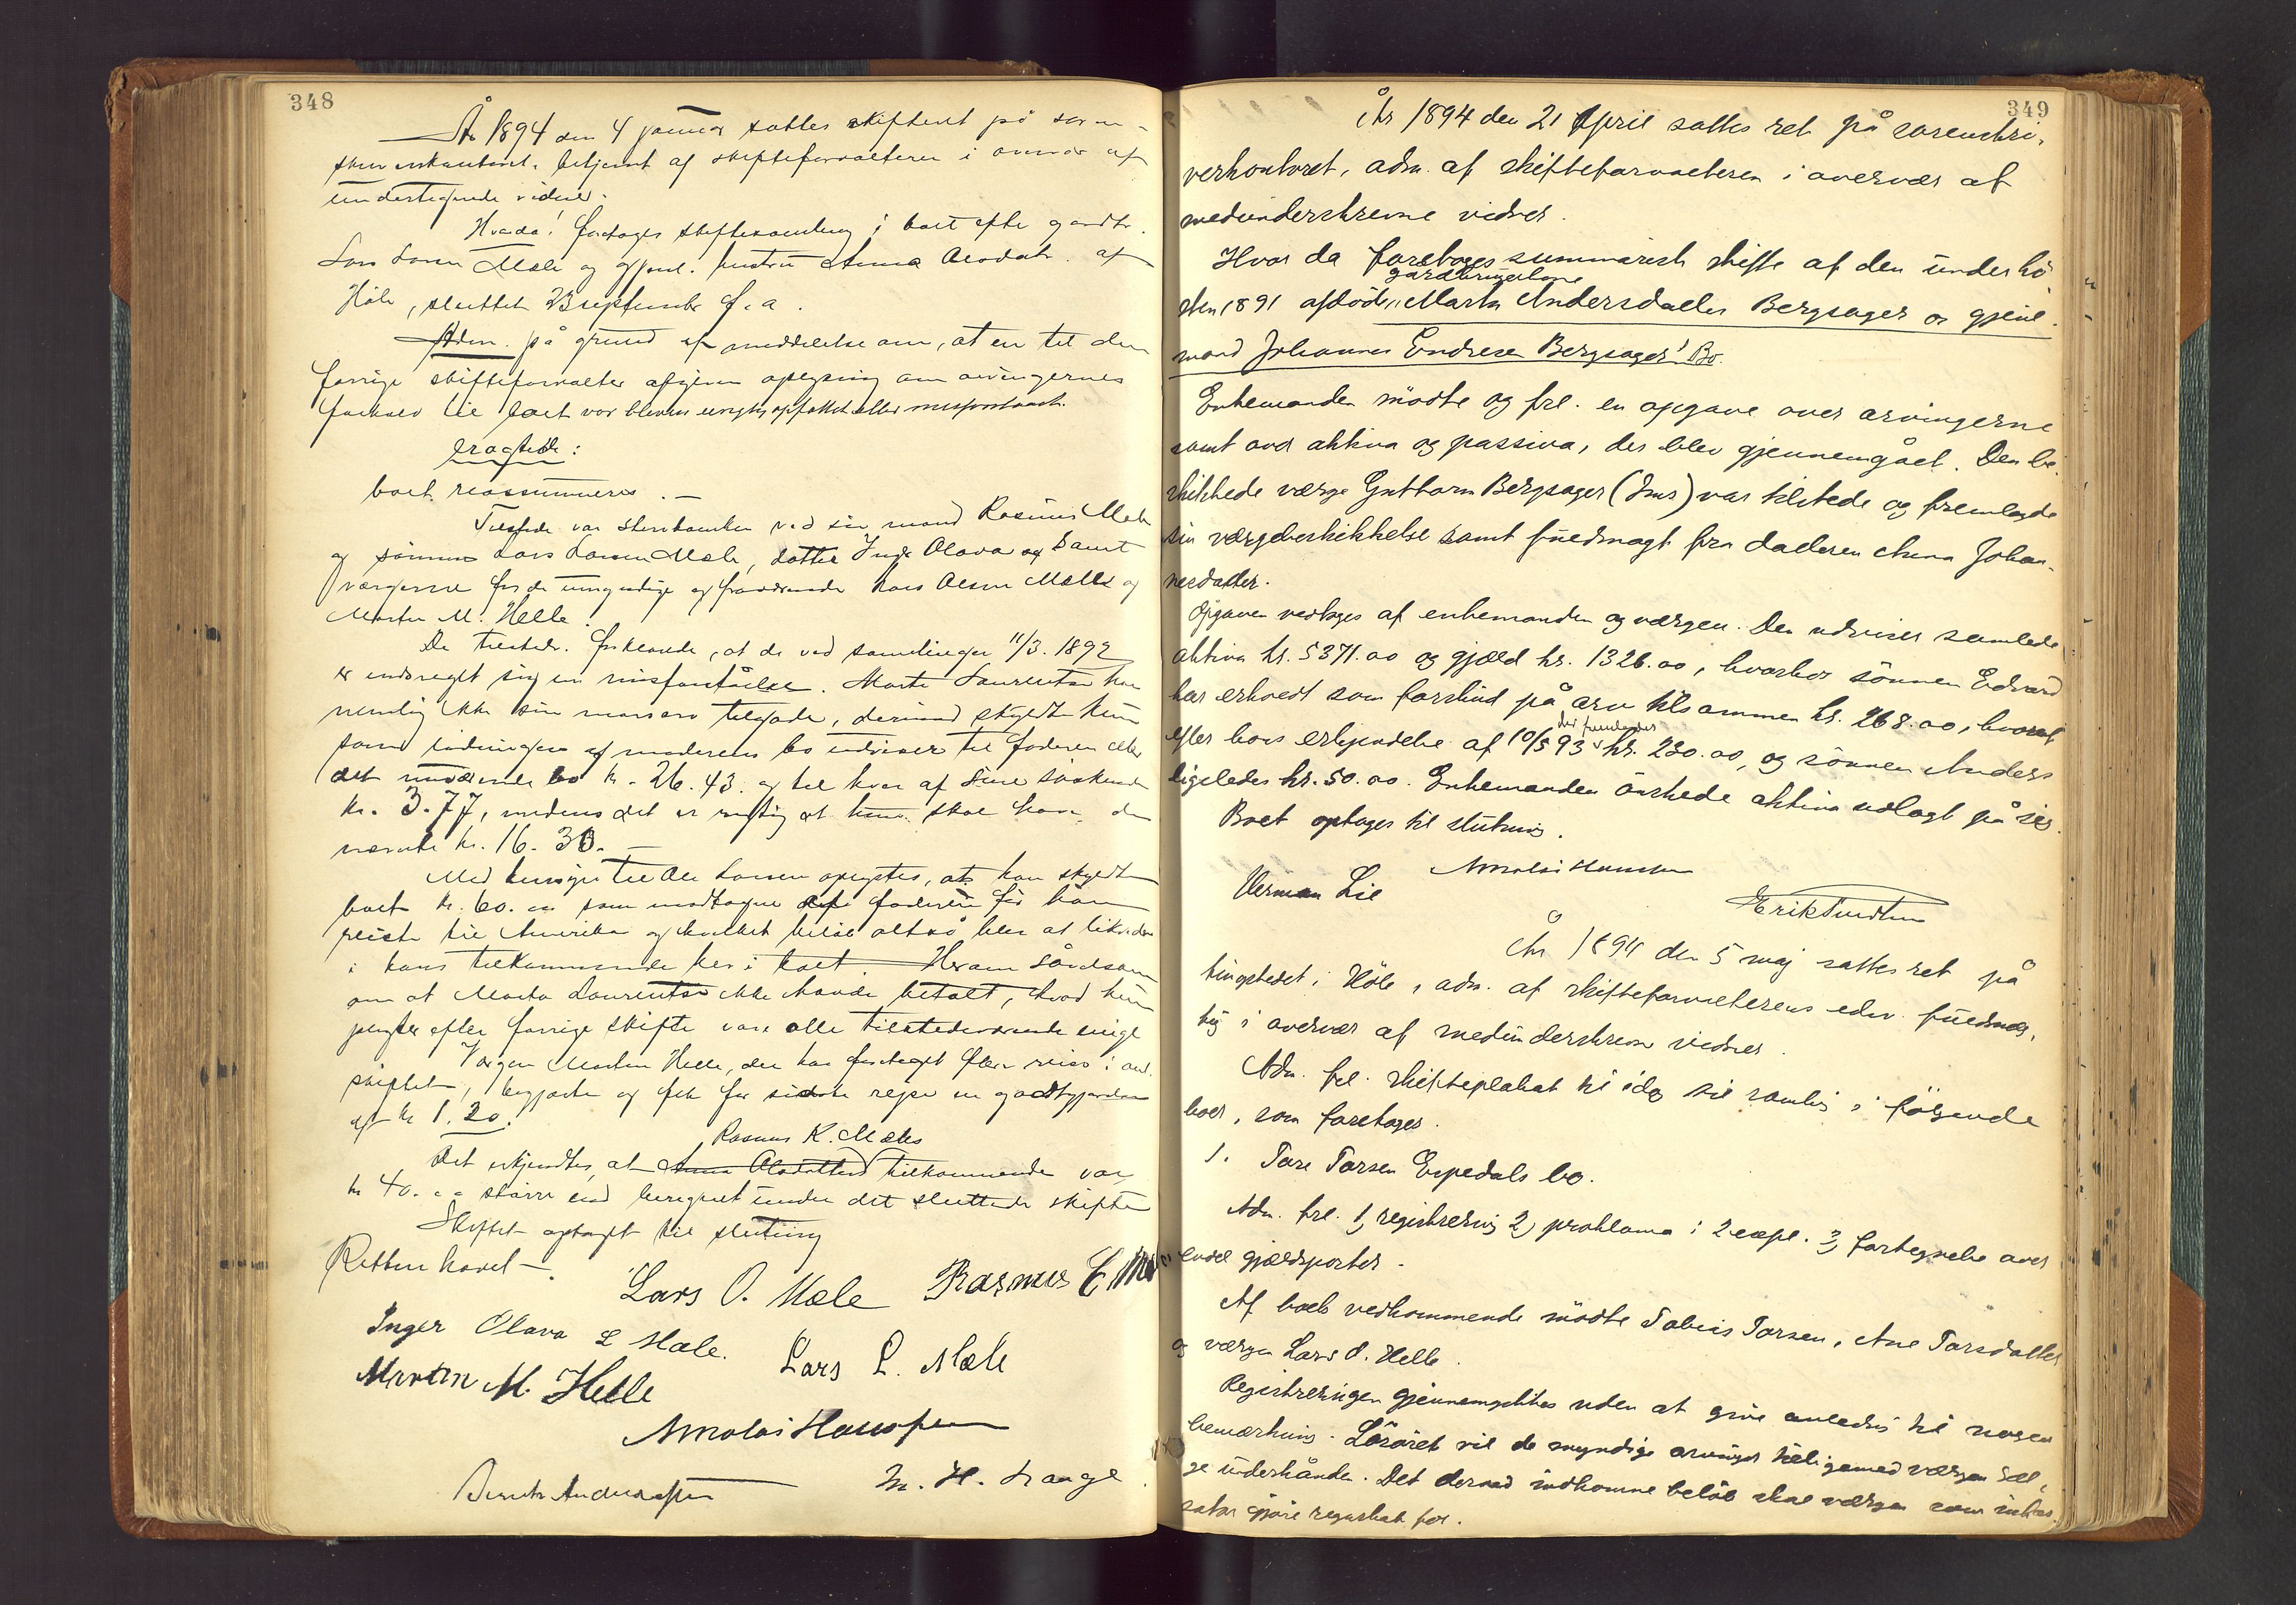 348
År 1894 den 4 januar sattes skifteret på soren-
skriverkontoret, betjent af skifteforvalteren i overvær af
undertegnede vidner.
Hvada! foretoges skiftesamling i boet efter gaardbr.
Lars Larsen Mæle og gjenl. hustru Anna Olsdatr. af
Höle, sluttet 23 september f. a.
Adm. på grund af meddelelse om, at en til den
forrige skifteforvalter afgiven oplysning om arvingernes
forhold til boet var bleven urigtig opfattet eller misforstaaet.
eragtede:
boet reassumeres. —
Tilstede var sterboenken ved sin mand Rasmus Mæle
og sönnen Lars Larsen Mæle, datter Inger Olava og samt
værgerne for de umyndige og fraværende Lars Olsen Mæle og
Morten M. Helle.
De tilstedev. forklarede, at de ved samlingen 11/3. 1892
er indsneget sig en misforståelse. Marta Laurentse har
nemlig ikke sin morsarv tilgode, derimod skylder hun
som lodningen af moderens bo udviser til faderen eller
det nuværende bo kr. 26.43 og til hver af sine söskende
kr. 3.77, medens det er rigtig at hun skal have de
nævnte kr. 16.30. —
Med hensyn til Ole Larsen oplystes, at han skyldte
boet kr. 60.00 som modtagne af faderen för han
reiste til Amerika og hvilket belöb altså blev at likvidere
i hans tilkommende her i boet. Herom såvelsom
om at Marta Laurentse ikke havde betalt, hvad hun
skylder efter forrige skifte vare alle tilstedeværende enige
Værgen Morten Helle, der har foretaget flere reiser i anl.
skiftet, begjærte og fik for sidste rejse en godtgjørelse
af kr 1.20.
Rasmus K. Mæles
Det erkjendtes, at Anna Olsdatters tilkommende var
kr 40.00 större end beregnet under det sluttede skifte
Skiftet optaget til slutning
Retten hævet —
Lars O. Mæle Rasmus
Inger Olava L Mæle. Lars L. Mæle
Morten M. Helle
Nikolai Hansen
M. H. Lange
349
År 1894 den 21 April sattes ret på sorenskri-
verkontoret, adm. af skifteforvalteren i overvær af
medunderskrevne vidner.
Hvor da foretoges summarisk skifte af den under hö
gårdbrugerkone
sten 1891 afdöde Marta Andersdatter Bergsager og gjenl.
mand Johannes Endresen Bergsagers Bo.
Enkemanden mödte og frl. en opgave over arvingerne
samt over aktiva og passiva, der blev gjennemgået. Den be-
skikkede værge Guttorm Bergsager (Ims) var tilstede og fremlagde
sin værgebeskikkelse samt fuldmagt fra datteren Anna Johan-
nesdatter.
Opgaven vedtoges af enkemanden og værgen. Den udviser samlede
aktiva kr. 5371.00 og gjæld kr. 1326.00, hvorhos sönnen Edvard
har erholdt som forskud på arv tilsammen kr. 268.00, hvoraf
der fremlagdes
efter hans erkjendelse af 10/5 93 kr. 230.00, og sönnen Anders
ligeledes kr. 50.00. Enkemanden önskede aktiva udlagt på sig.
Boet optoges til slutning.
Nikolai Hansen
Herman Lie
Erik
År 1894 den 5 maj sattes ret på
tingstedet i Höle, adm. af skifteforvalterens edsv. fuldmæg-
tig i overvær af medunderskrevne vidner.
Adm. frl. skifteplakat til idag til samling i fölgende
boer, som foretoges.
1. Tore Torsen Espedals bo.
Adm. frl. 1, registrering 2, proklama i 2 expl. 3, fortegnelse over
endel gjældsposter.
Af boets vedkommende mödte Tobias Torsen, Ane Torsdatter
og værgen Lars O. Helle.
Registreringen gjennemgikkes uden at give anledn. til nogen
bemærkning. Lösöret vil de myndige arvinger tilligemed værgen sæl-
ge underhånden. Det derved indkomne belöb skal værgen som inkas-
sator gjöre regnskab for.